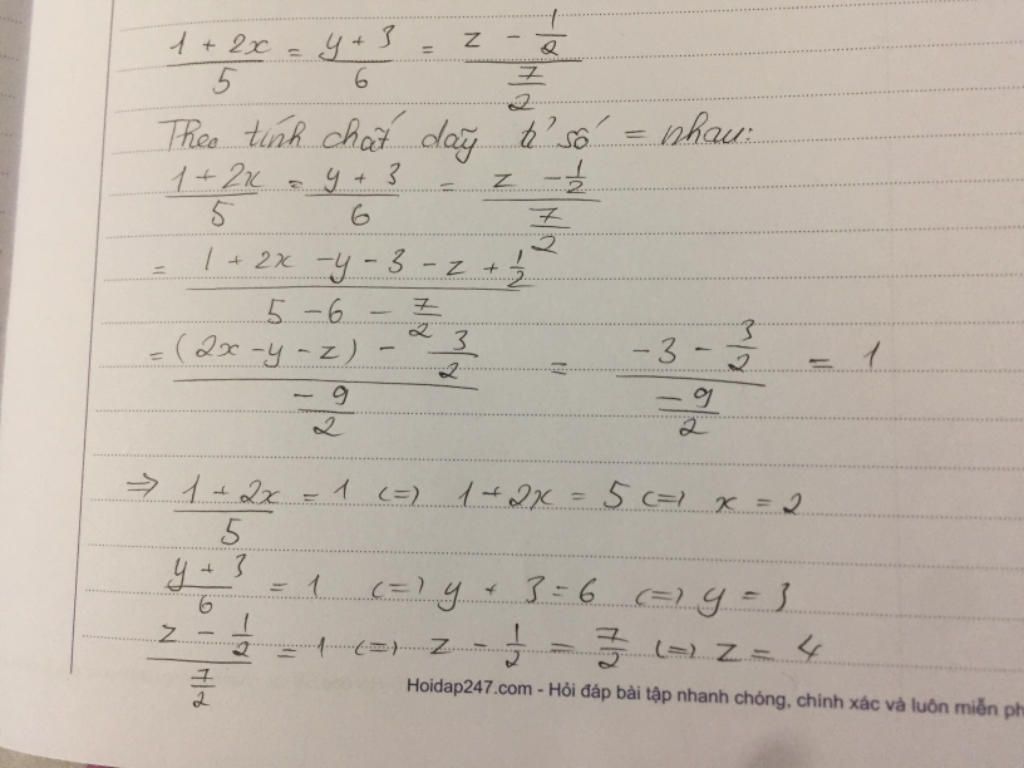 (1 + 2x)/5 = (y + 3)/6 = (z - 1/2)/(7/2)
Theo tính chất dãy tỉ số = nhau:
(1 + 2x)/5 = (y + 3)/6 = (z - 1/2)/(7/2)
= (1 + 2x - y - 3 - z + 1/2)/(5 - 6 - 7/2)
= ((2x - y - z) - 3/2)/(-9/2) = (-3 - 3/2)/(-9/2) = 1
=> (1 + 2x)/5 = 1 (=) 1 + 2x = 5 (=) x = 2
(y + 3)/6 = 1 (=) y + 3 = 6 (=) y = 3
(z - 1/2)/(7/2) = 1 (=) z - 1/2 = 7/2 (=) z = 4
Hoidap247.com - Hỏi đáp bài tập nhanh chóng, chính xác và luôn miễn ph